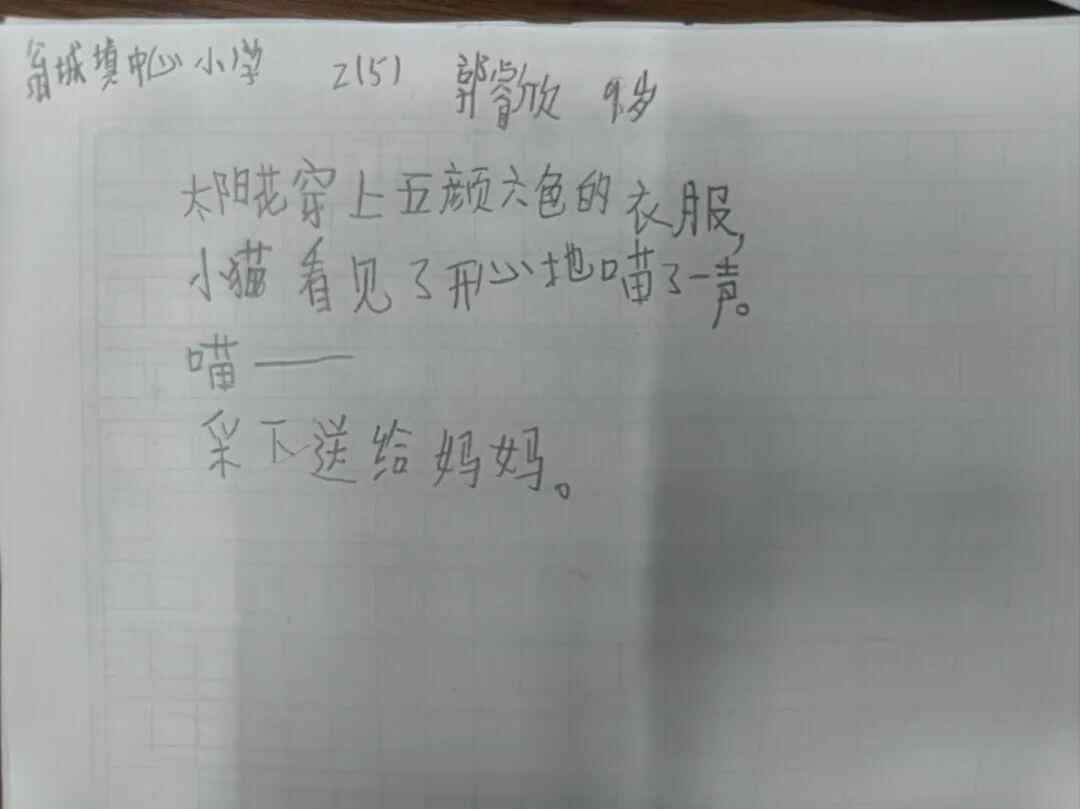 翁城填中心小学 2(5) 郭睿欣 9岁
太阳花穿上五颜六色的衣服,
小猫看见了开心地喵了一声。
喵——
采下送给妈妈。